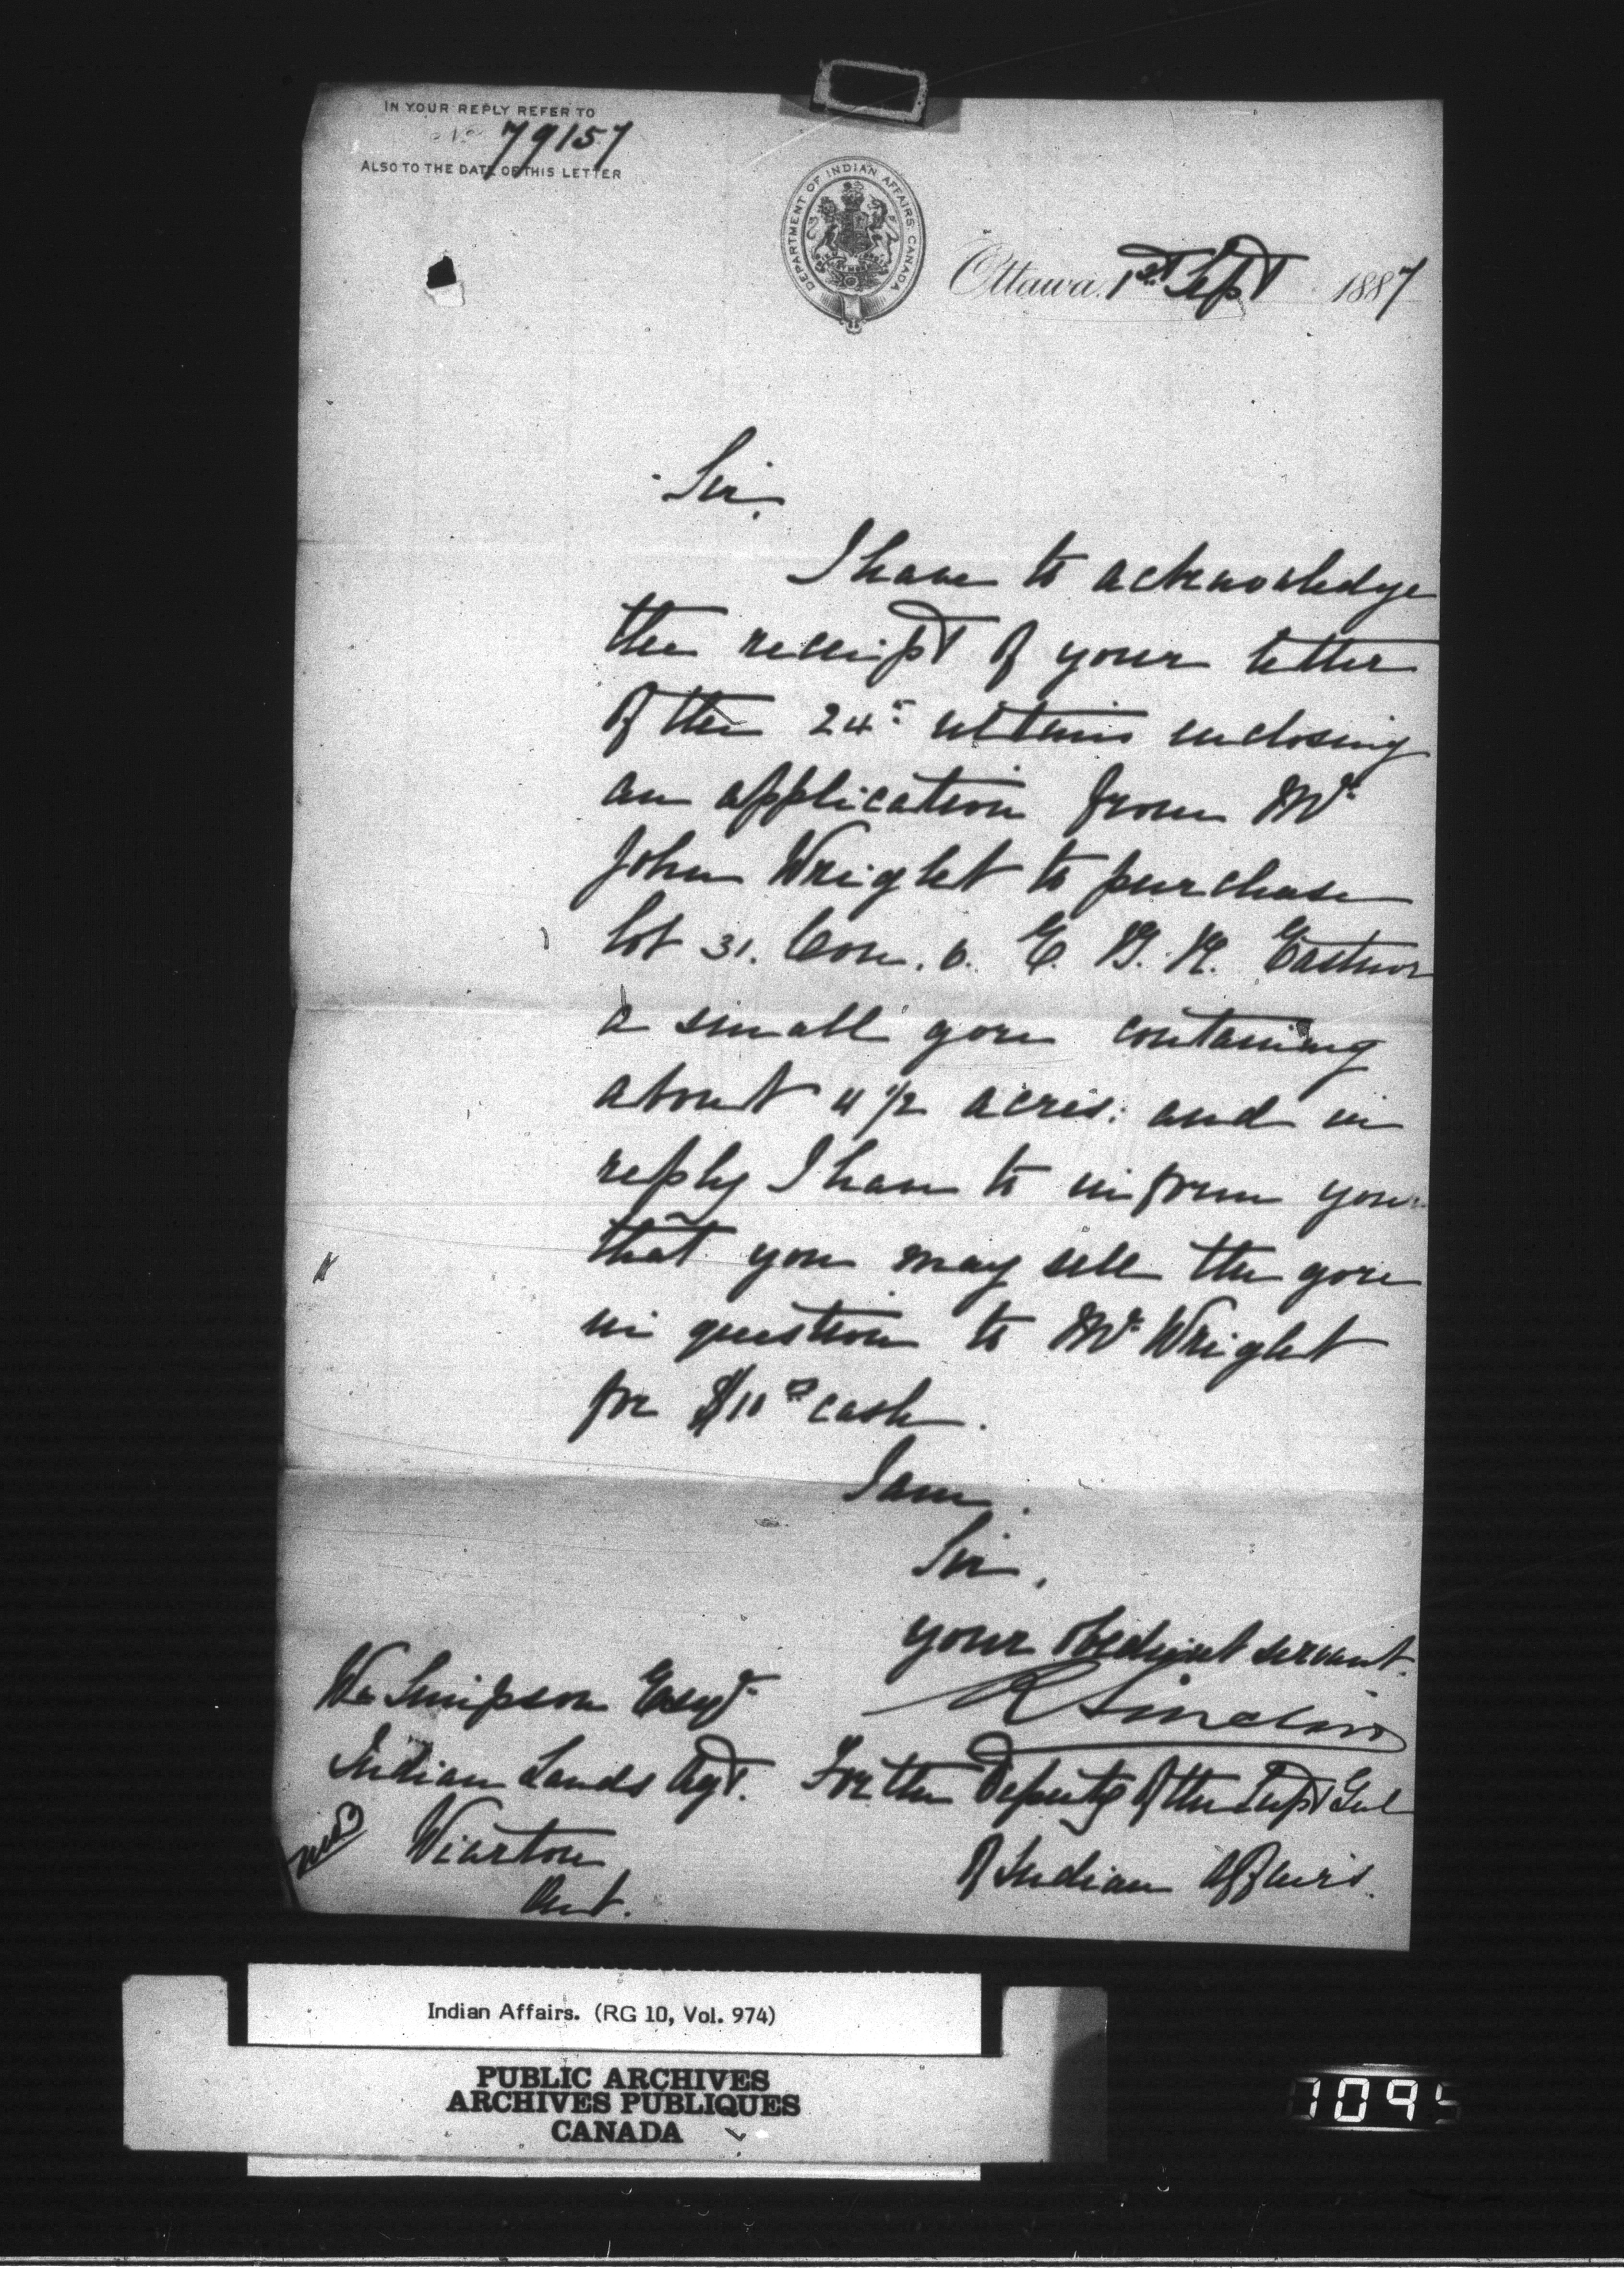 IN YOUR REPLY REFER TO
No 79157
ALSO TO THE DATE OF THIS LETTER
DEPARTMENT OF INDIAN AFFAIRS CANADA
Ottawa, 1st Sept 1887
Sir,
I have to acknowledge
the receipt of your letter
of the 24th ultimo enclosing
an application from Mr
John Wright to purchase
lot 31. Con. 6. E. B. R. Eastnor
a small gore containing
about 4 1/2 acres: and in
reply I have to inform you
that you may sell the gore
in question to Mr Wright
for $10 cash.
I am.
Sir,
your obedient servant.
R Sinclair
For the Deputy of the Supt Genl
of Indian Affairs.
Wm Simpson Esqr
Indian Lands Agt.
Wiarton
Ont.
Indian Affairs. (RG 10, Vol. 974)
PUBLIC ARCHIVES
ARCHIVES PUBLIQUES
CANADA
1095